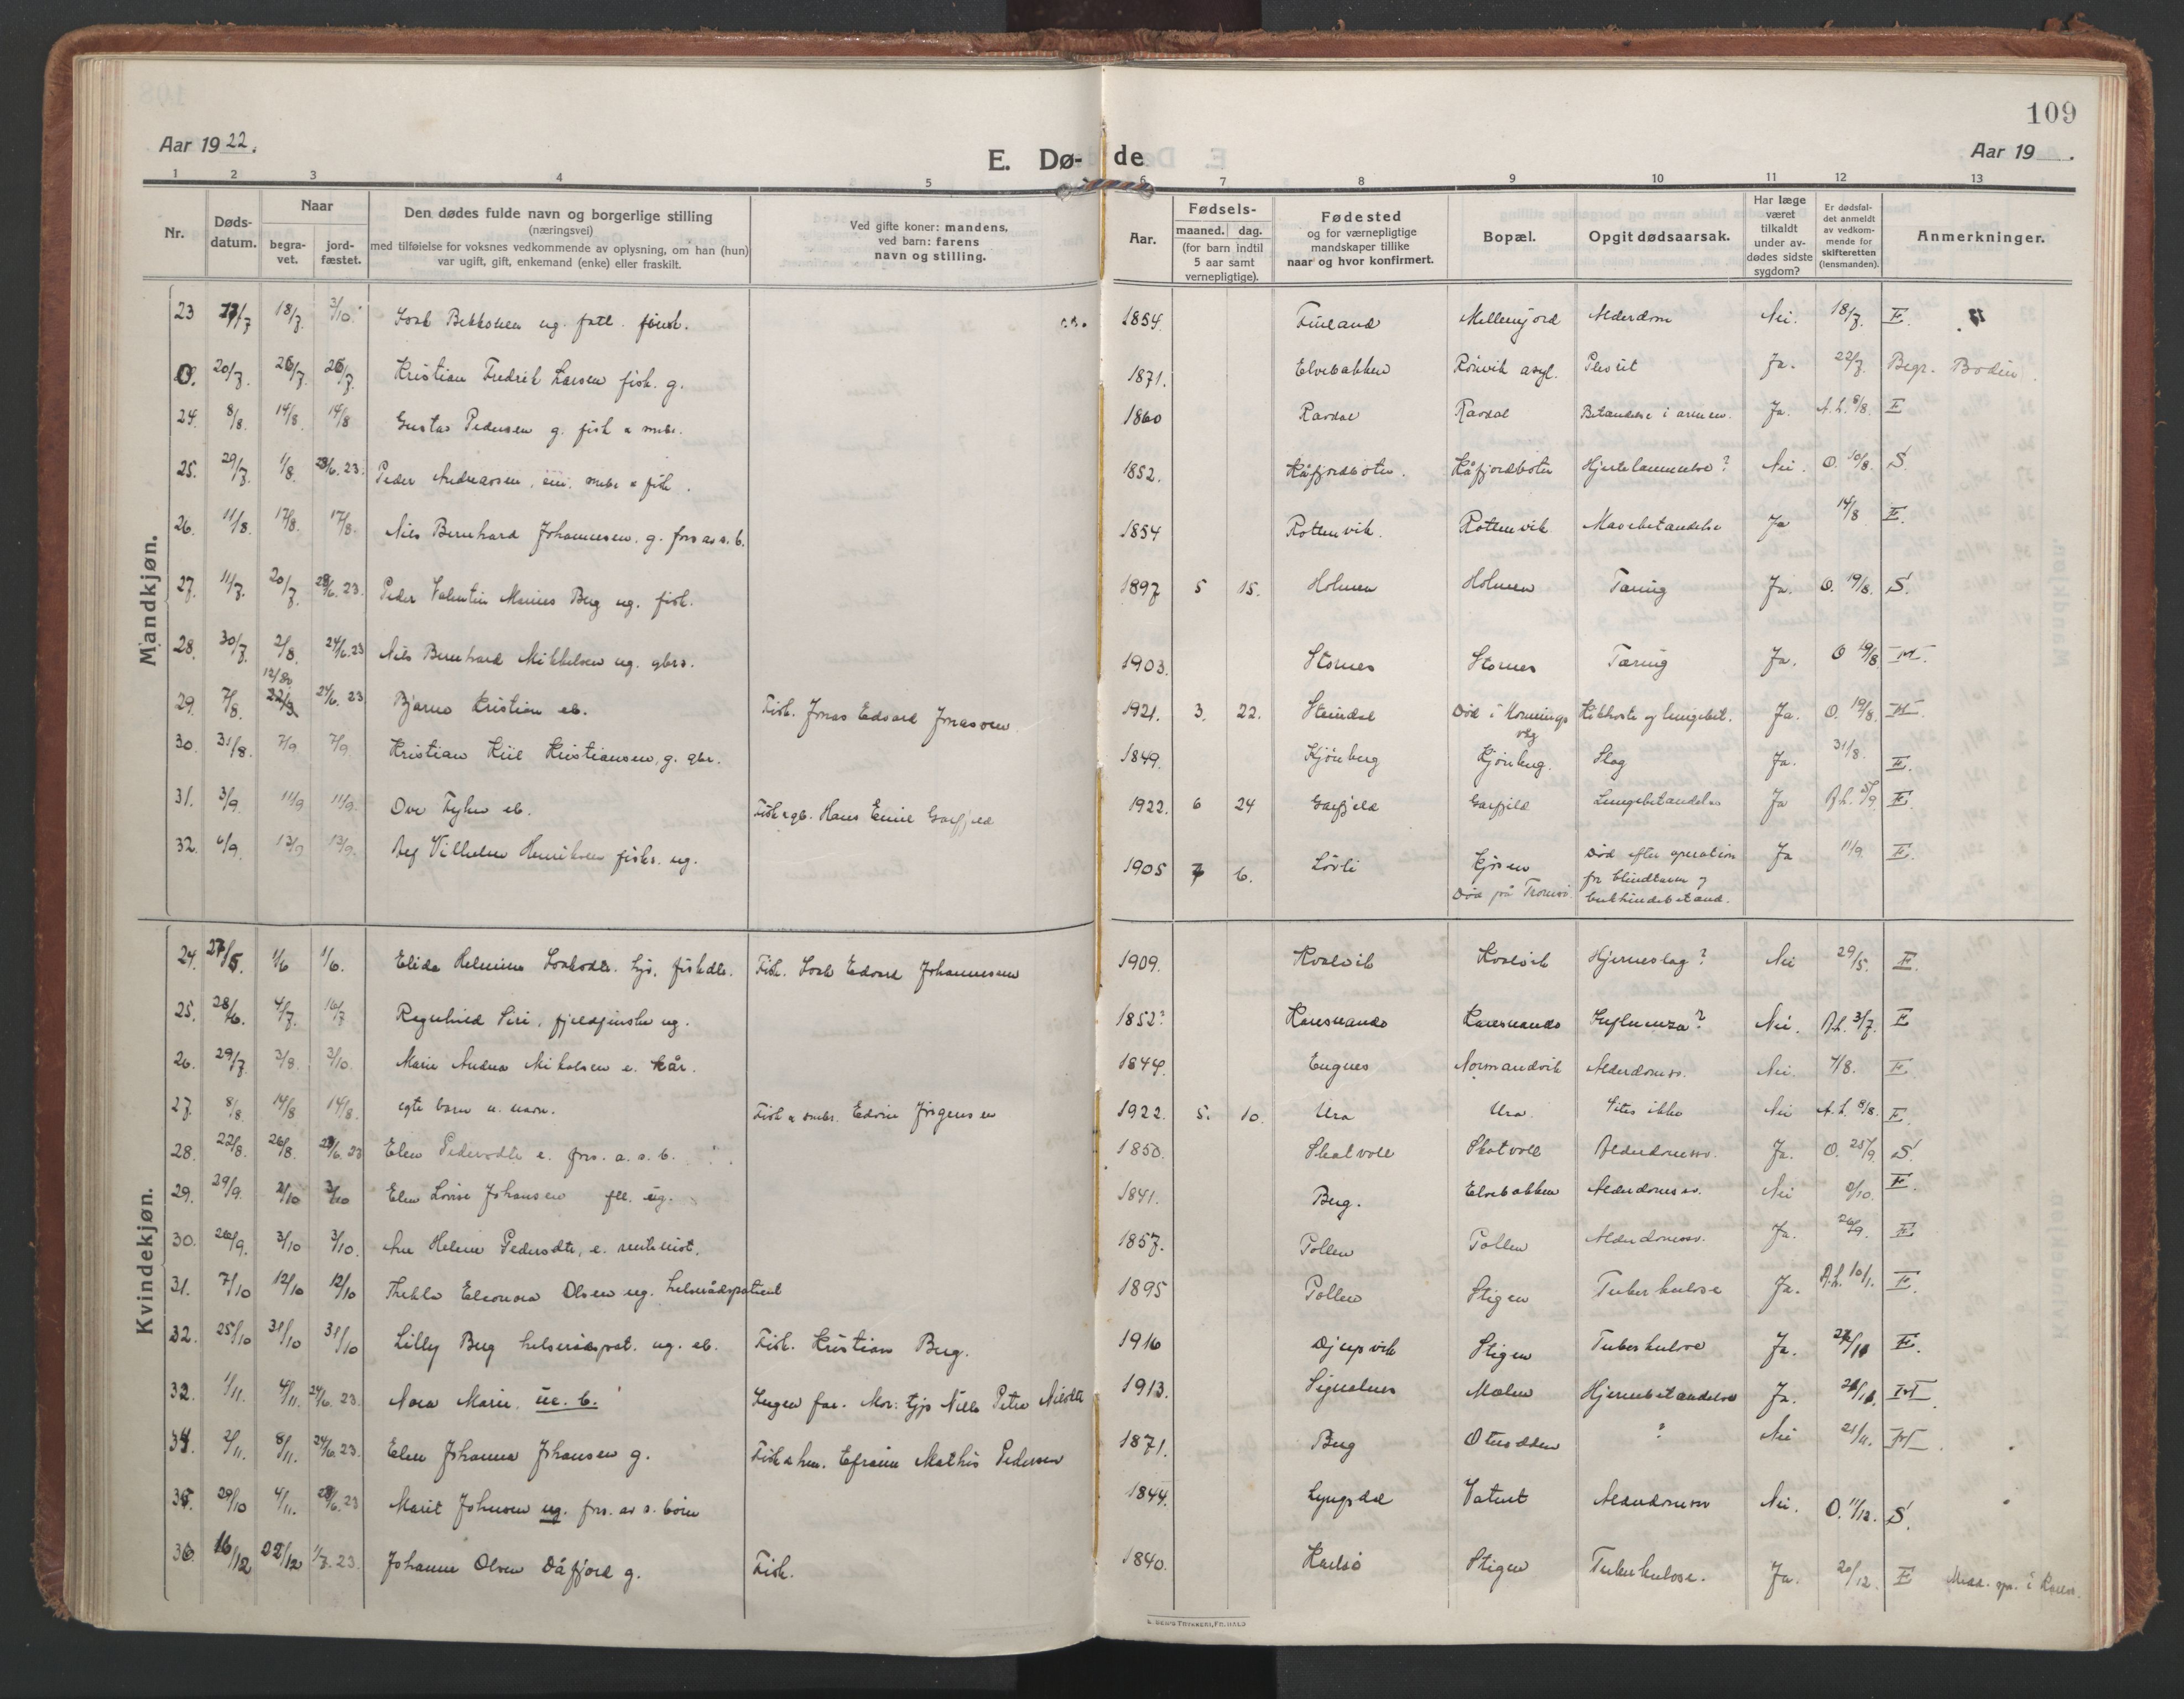 109
Aar 1922.
E. Dø- de
Aar 19 .
1 2 3 4 5 6 7 8 9 10 11 12 13
Nr.
Døds-
datum.
Naar
begra-
vet.
jord-
fæstet.
Den dødes fulde navn og borgerlige stilling
(næringsvei)
med tilføielse for voksnes vedkommende av oplysning, om han (hun)
var ugift, gift, enkemand (enke) eller fraskilt.
Ved gifte koner: mandens,
ved barn: farens
navn og stilling.
Fødsels-
Aar.
maaned. dag.
(for barn indtil
5 aar samt
vernepligtige).
Fødested
og for værnepligtige
mandskaper tillike
naar og hvor konfirmert.
Bopæl.
Opgit dødsaarsak.
Har læge
været
tilkaldt
under av-
dødes sidste
sygdom?
Er dødsfal-
det anmeldt
av vedkom-
mende for
skifteretten
(lensmanden).
Anmerkninger.
Mandkjøn.
23 17/7 18/7. 3/10. ug. 1854. Finland Alderdom Nei. 18/7. F.
0. 20/7. 26/7. 26/7. Kristian Fredrik Larsen fisk. g. 1871. Elvebakken Rønvik asyl. Ja. 22/7. Begr. Bodin.
24. 8/8. 14/8. 14/8 Gustav Pedersen g. fisk 1860 Betændelse i armen. Ja. A.L. 8/8. F
25. 29/7. 1/8. 28/6. 23. Peder Andreassen, fisk. 1852. Kåfjordboten. Kåfjordboten Hjertelammelse? Nei. O. 10/8. S
26. 11/8. 17/8. 17/8. Nils Bernhard Johannesen. g. fors. av s. b. 1854 Rottenvik. Rottenvik Mavebetændelse Ja 14/8 F.
27. 11/7. 20/7. 28/6. 23. Peder Valentin Marius Berg ug. fisk. 1897 5 15. Holmen Holmen Tæring Ja. O. 19/8. S.
28. 30/7. 2/8. 24/6. 23 Nils Bernhard Mikkelsen ug. gbrs. 1903. Stornes Stornes Tæring Ja. O 19/8 M.
29. 7/8. 12/8 24/6. 23 Bjarne Kristian eb. Fisk. Jonas Edvard Jonassen. 1921. 3. 22. Steindal Død i Honningsvåg Kikhoste og lungebet. Ja. O. 19/8. M
30. 31/8. 7/9 7/9 Kristian Kiil Kristiansen, g. gbr. 1849. Kjønberg Kjønberg. Slag Ja. 31/8. F.
31. 3/9. 11/9 11/9. Ove eb. Fisk & gb. Hans Emil 1922. 6 24 Lungebetændelse Ja F.
32. 6/9. 13/9 13/9. Vilhelm Henriksen fiskr. ug. 1905 7 6. Løvli Kjosen Død på Tromsø Død efter operation for blindtarm og bukhindebetænd. Ja 11/9. F.
Kvindekjøn.
24. 27/5. 1/6 1/6. Elida Helmine fiskdtr. Fisk. Edvard Johannessen 1909. Kvalvik Kvalvik Hjerneslag? Nei 29/5. F.
25. 28/6. 4/7. 16/7 Siri, fjeldfinske ug. 1852? Karesuando Karesuando Influenza? Nei. A.L. 3/7. F
26. 29/7. 3/8. 3/10. Marie Andrea Mikalsen e. kår. 1844. Eugnes Normandvik Alderdomssv. Nei. 4/8. F.
27. 8/8. 14/8 14/8. egte barn u. navn. Fisk & smbr. Edvin Jørgensen 1922. 5. 10. Ura Ura. Vites ikke Nei A.L. 8/8. F.
28. 22/8. 26/8. 28/6. 23 Elen Pedersdtr. e. fors. a. s. b. 1850. Skatvoll Skatvoll Alderdomssv. Ja. O. 25/9. S.
29. 29/9. 2/10 3/10 Elen Lovise Johansen ug. 1841. Berg. Elvebakken Alderdomssv. Nei F.
30. 26/9. 3/10 3/10. Ane Helene Pedersdtr, e. 1857. Pollen Pollen Alderdomssv. Ja. 26/9. F.
31. 7/10 12/10 12/10 Thekla Eleonora Olsen ug. helserådspatient 1895 Pollen Stigen Tuberkulose Ja. A.L. 10/1. F.
32. 25/10 31/10 31/10 Lilly Berg helserådspat. ug. eb. Fisk. Kristian Berg. 1916 Djupvik Stigen Tuberkulose Ja. F.
32. 1/11. 4/11. 24/6. 23. Nora Marie. ue. b. Ingen far. Mor: tjp Nille Petra Nilsdtr 1913. Signalnes Malen Hjernebetændelse Ja. M.
34. 2/11. 8/11. 24/6. 23. Elen Johanna Johansen g. Efraim Mathis Pedersen 1871. Berg ? Nei 21/11. M.
35. 29/10 4/11. 28/6. 23 Marit Johnsen ug. fors. av s. børn 1844. Lyngsdal Vatnet Alderdomssv Nei. O. 11/12. S.
36. 16/12 22/12 1/7. 23. Johanne Olsen Dåfjord g. Fisk. 1840. Karlsø Stigen Tuberkulose. Ja. 20/12. F